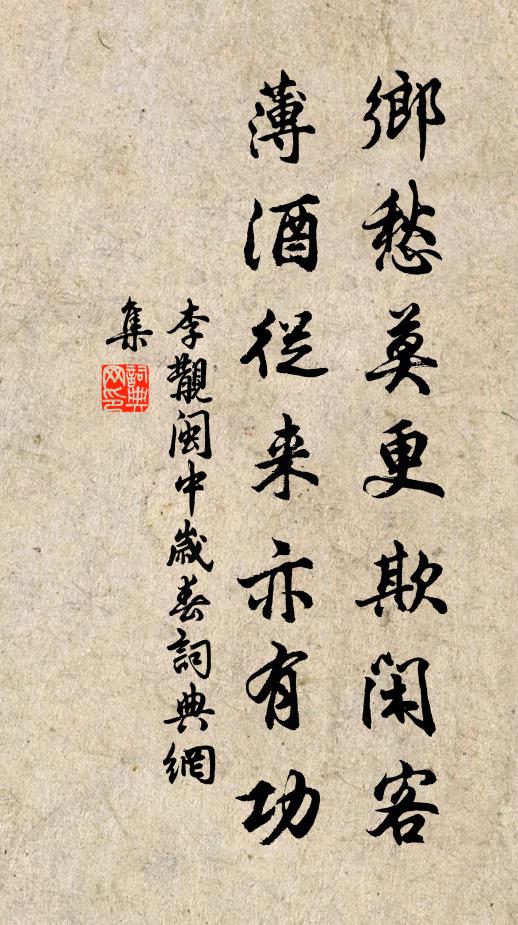 鄉愁莫更欺閑客
薄酒從来亦有功
李覯閩中歲暮詞典網
集
詞典
网印